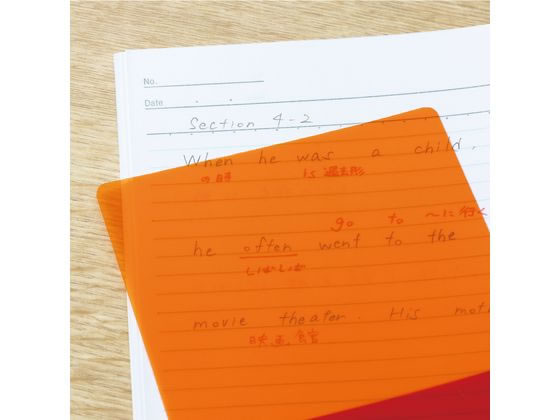 No.
Date
Section 4-2
When he was a child,
の時 is 過去形
go to ~に行く
he often went to the
しばしば
movie theater. His
映画館